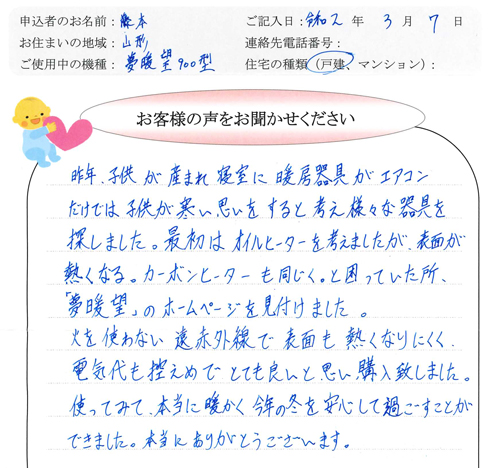 申込者のお名前：藤本
ご記入日：令和2年3月7日
お住まいの地域：山形
連絡先電話番号：
ご使用中の機種：夢暖望900型
住宅の種類（戸建、マンション）：
お客様の声をお聞かせください
昨年、子供が産まれ寝室に暖房器具がエアコン
だけでは子供が寒い思いをすると考え様々な器具を
探しました。最初はオイルヒーターを考えましたが、表面が
熱くなる。カーボンヒーターも同じく。と困っていた所、
「夢暖望」のホームページを見付けました。
火を使わない遠赤外線で表面も熱くなりにくく、
電気代も控えめでとても良いと思い購入致しました。
使ってみて、本当に暖かく今年の冬を安心して過ごすことが
できました。本当にありがとうございます。